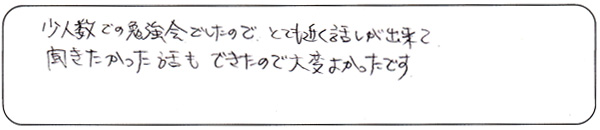 少人数での勉強会でしたので、とても近く話しが出来て
聞きたかった話も できたので大変よかったです